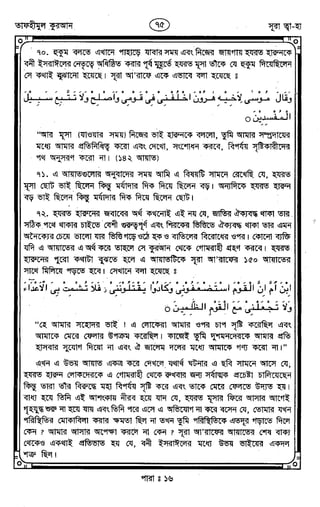 তাফহীমুল কুরআন
৭৫
সূরা ত্বা-হা
৭০. হুকুম বলতে এখানে পাহাড়ে যাবার সময় এবং নিজের জায়গায় হযরত হারুনকে
বনী ইসরাঈলের নেতৃত্বে অধিষ্ঠিত করার পূর্ব মুহূর্তে হযরত মূসা তাঁকে যে হুকুম দিয়েছিলেন
সে কথাই বুঝানো হয়েছে। সূরা আ'রাফে একে এভাবে বলা হয়েছে ঃ
وَقَالَ مُوسَى لِأَخِيهِ هَٰرُونَ اخْلُفْنِي فِي قَوْمِي وَأَصْلِحْ وَلَا تَتَّبِعْ سَبِيلَ
الْمُفْسِدِينَ ○
"আর মূসা (যাওয়ার সময়) নিজের ভাই হারুনকে বললো, তুমি আমার সম্প্রদায়ের
মধ্যে আমার প্রতিনিধিত্ব করো এবং দেখো, সংশোধন করবে, বিপর্যয় সৃষ্টিকারীদের
পথ অনুসরণ করো না। (১৪২ আয়াত)
৭১. এ আয়াতগুলোর অনুবাদের সময় আমি এ বিষয়টি সামনে রেখেছি যে, হযরত
মূসা ছোট ভাই ছিলেন কিন্তু মর্যাদার দিক দিয়ে ছিলেন বড়। অন্যদিকে হযরত হারুন
বড় ভাই ছিলেন কিন্তু মর্যাদার দিক দিয়ে ছিলেন ছোট।
৭২. হযরত হারুনের জবাবের অর্থ কখনোই এই নয় যে, জাতির ঐক্যবদ্ধ থাকা তার
সঠিক পথে থাকার চাইতে বেশী গুরুত্বপূর্ণ এবং শিরকের ভিত্তিতে ঐক্যবদ্ধ থাকা তার এমন
যদি এ আয়াতের এ অর্থ করে তাহলে সে কুরআন থেকে গোমরাহী গ্রহণ করবে। হযরত
হারুনের পুরো কথাটা বুঝতে হলে এ আয়াতটিকে সূরা আ'রাফের ১৫০ আয়াতের
সাথে মিলিয়ে পড়তে হবে। সেখানে বলা হয়েছে ঃ
ابْنَ أُمَّ إِنَّ الْقَوْمَ اسْتَضْعَفُونِي وَكَادُوا يَقْتُلُونَنِي فَلَا تُشْمِتْ بِيَ الْأَعْدَاءَ
وَلَا تَجْعَلْنِي مَعَ الْقَوْمِ الظَّٰلِمِينَ ○
"হে আমার সহোদর ভাই ! এ লোকেরা আমার ওপর চাপ সৃষ্টি করেছিল এবং
আমাকে মেরে ফেলার উপক্রম করেছিল। কাজেই তুমি দুশমনদেরকে আমার প্রতি
হাসবার সুযোগ দিয়ো না এবং ঐ জালেম দলের মধ্যে আমাকে গণ্য করো না।"
এখন এ উভয় আয়াত একত্র করে দেখলে যথার্থ ঘটনার এ ছবি সামনে আসে যে,
হযরত হারুন লোকদেরকে এ গোমরাহী থেকে রুখবার জন্য সর্বাত্মক প্রচেষ্টা চালিয়েছেন
কিন্তু তারা তাঁর বিরুদ্ধে মহা বিপর্যয় সৃষ্টি করে এবং তাকে মেরে ফেলতে উদ্যত হয়।
বাধ্য হয়ে তিনি এই আশংকায় নীরব হয়ে যান যে, হযরত মূসার ফিরে আসার আগেই
গৃহযুদ্ধ শুরু না হয়ে যায় এবং তিনি পরে এসে এ অভিযোগ না করে বসেন যে, তোমার যখন
পরিস্থিতির মোকাবিলা করার ক্ষমতা ছিল না তখন তুমি পরিস্থিতিকে এতদূর গড়াতে দিলে
কেন ? আমার আসার অপেক্ষা করলে না কেন ? সূরা আ'রাফের আয়াতের শেষ বাক্য
থেকেও একথাই প্রতিভাত হয় যে, বনী ইসরাঈলের মধ্যে উভয় ভাইয়ের একদল
শত্রু ছিল।
পারা ঃ ১৬